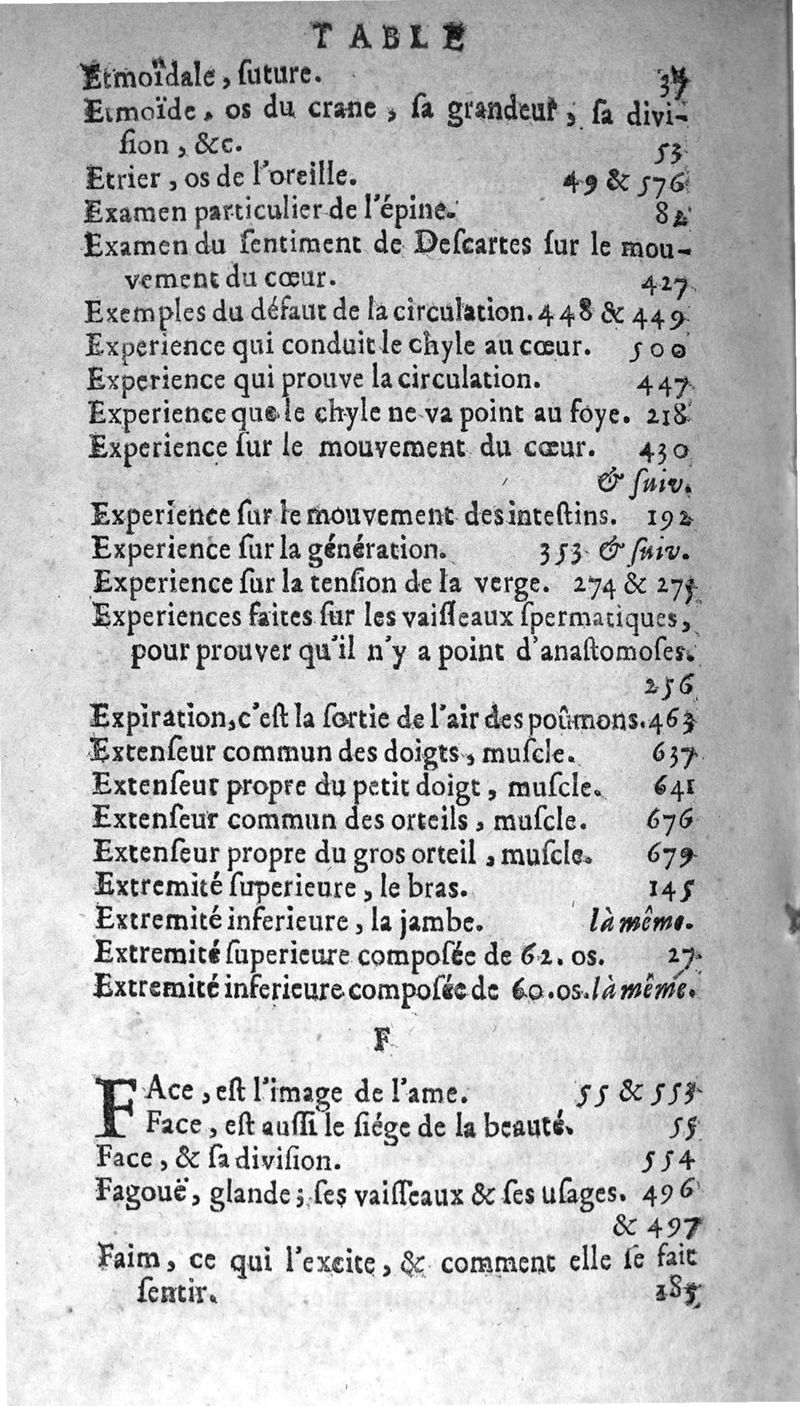 TABLE
Etmoïdale, ſuture. 37
Etmoïde, os du crane, ſa grandeur, ſa divi-
ſion, &c. 53
Etrier, os de l'oreille. 49 & 576
Examen particulier de l'épine. 82
Examen du ſentiment de Deſcartes ſur le mou-
vement du cœur. 427
Exemples du défaut de la circulation. 448 & 449
Experience qui conduit le chyle au cœur. 500
Experience qui prouve la circulation. 447
Experience que le chyle ne va point au foye. 218
Experience ſur le mouvement du cœur. 430
& ſuiv.
Experience ſur le mouvement des inteſtins. 192
Experience ſur la génération. 353 & ſuiv.
Experience ſur la tenſion de la verge. 274 & 275
Experiences faites ſur les vaiſſeaux ſpermatiques,
pour prouver qu'il n'y a point d'anaſtomoſes.
256
Expiration, c'eſt la ſortie de l'air des poûmons. 463
Extenſeur commun des doigts, muſcle. 637
Extenſeur propre du petit doigt, muſcle. 641
Extenſeur commun des orteils, muſcle. 676
Extenſeur propre du gros orteil, muſcle. 679
Extremité ſuperieure, le bras. 145
Extremité inferieure, la jambe. là même.
Extremité ſuperieure compoſée de 62. os. 27
Extremité inferieure compoſée de 60. os. là même.
F
FAce, eſt l'image de l'ame. 55 & 553
Face, eſt auſſi le ſiége de la beauté. 55
Face, & ſa diviſion. 554
Fagouë, glande; ſes vaiſſeaux & ſes uſages. 496
& 497
Faim, ce qui l'excite, & comment elle ſe fait
ſentir. 185